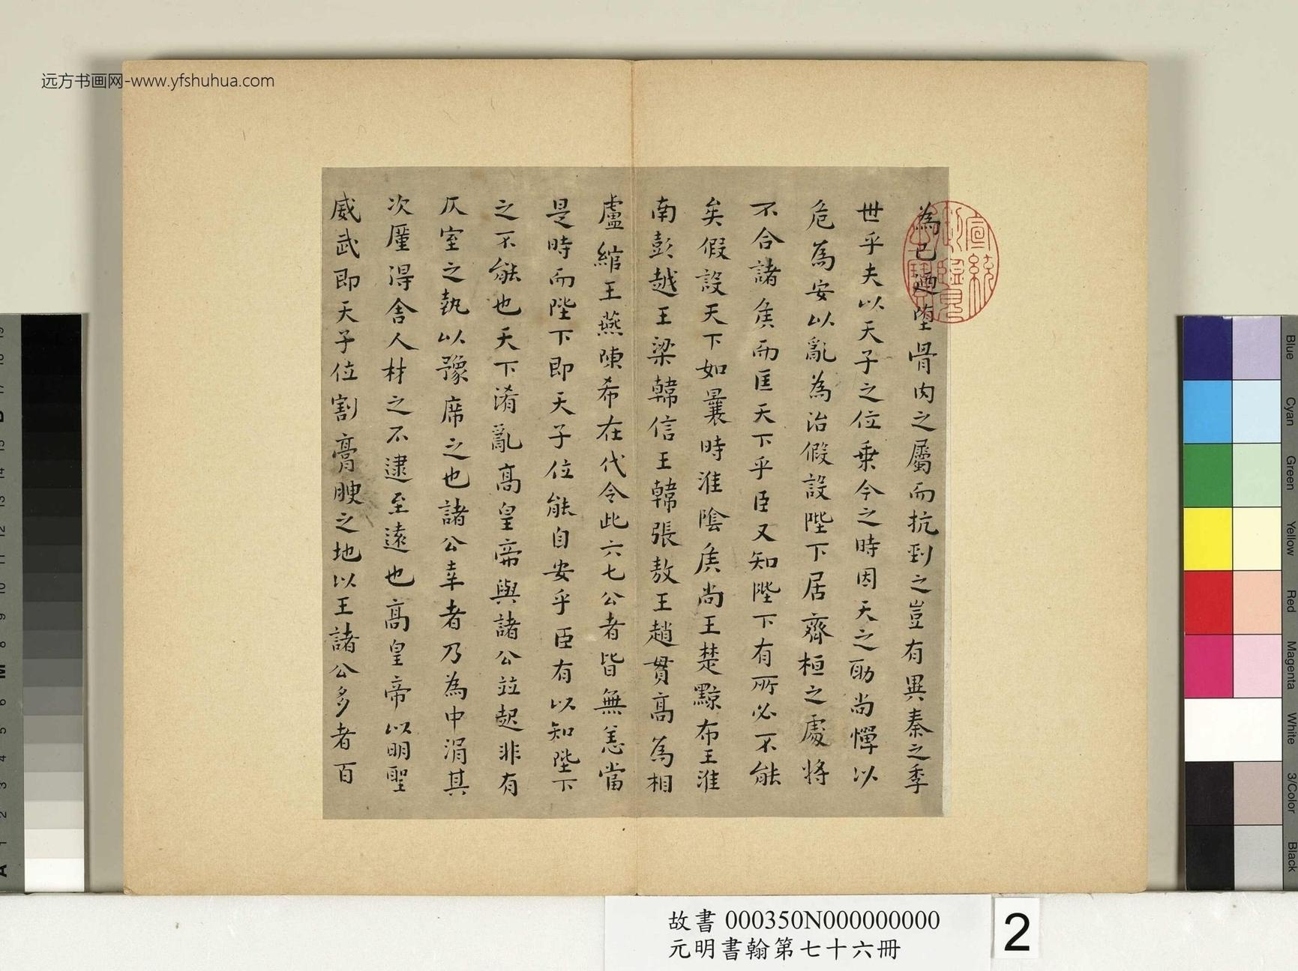 远方书画网-www.yfshuhua.com
為已迺墮骨肉之屬而抗剄之豈有異秦之季
世乎夫以天子之位乗今之時因天之助尚憚以
危為安以亂為治假設陛下居齊桓之處将
不合諸矦而匡天下乎臣又知陛下有所必不能
矣假設天下如曩時淮陰矦尚王楚黥布王淮
南彭越王梁韓信王韓張敖王趙貫高為相
盧綰王燕陳希在代令此六七公者皆無恙當
是時而陛下即天子位能自安乎臣有以知陛下
之不能也天下淆亂高皇帝與諸公竝起非有
仄室之埶以豫席之也諸公幸者乃為中涓其
次厪得舎人材之不逮至遠也高皇帝以明聖
威武即天子位割膏腴之地以王諸公多者百
宣統御覽之寳
Blue
Cyan
Green
Yellow
Red
Magenta
White
3/Color
Black
故書 000350N000000000
元明書翰第七十六冊
2